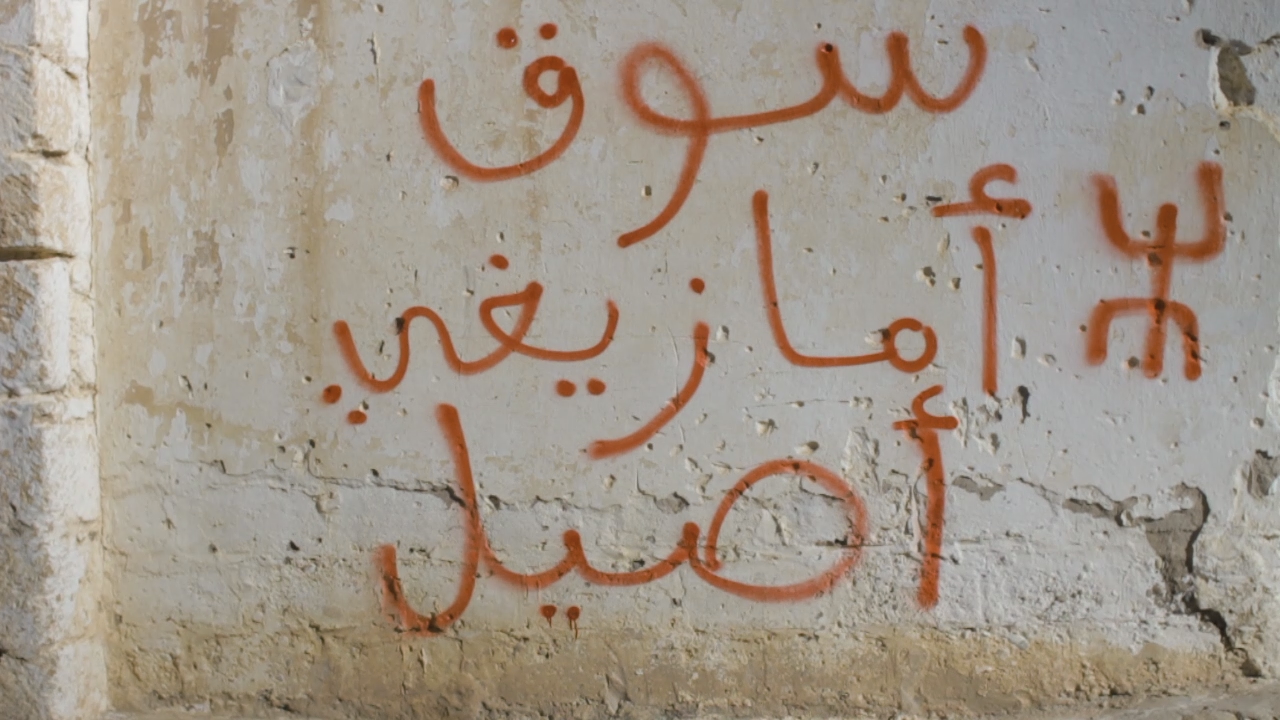 سوق
ⵣ أمازيغي
أصيل